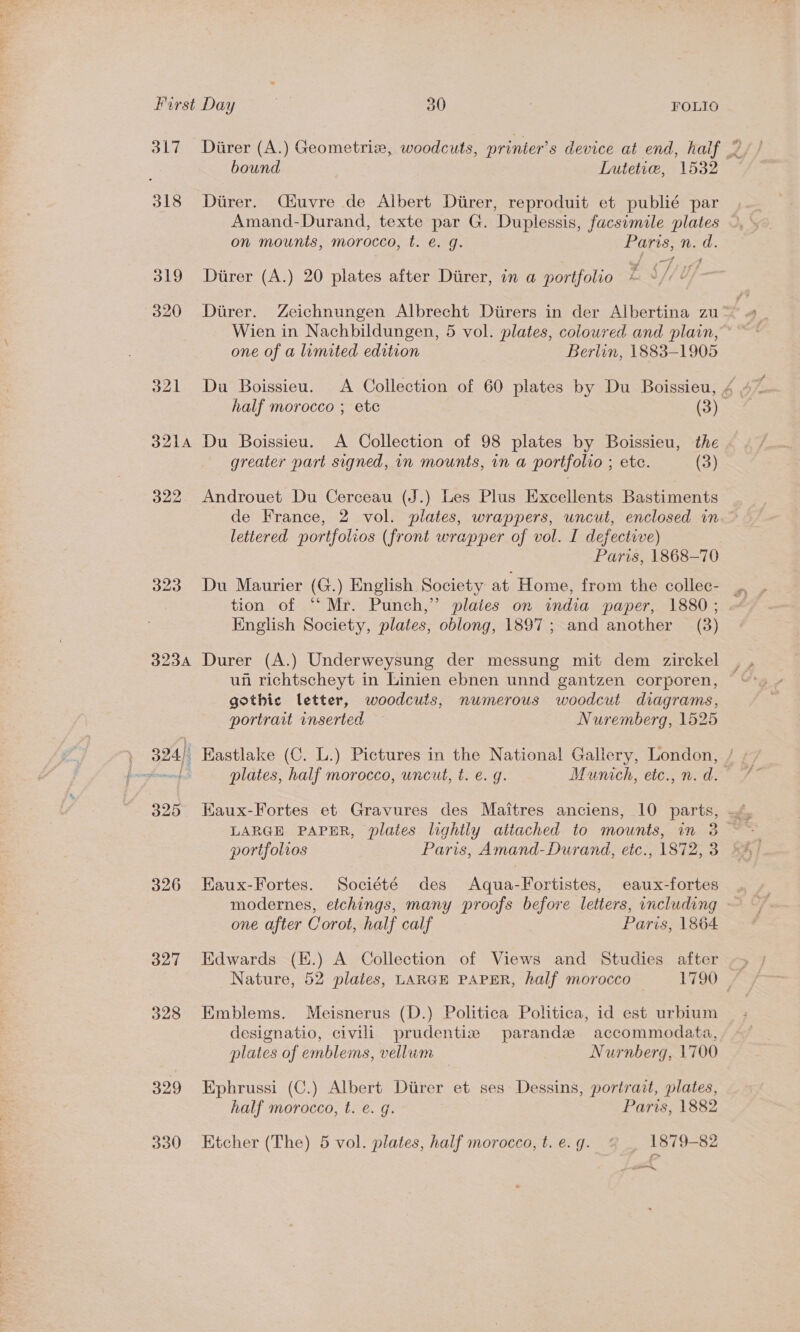 First Day 30 FOLIO
317 Dürer (A.) Geometriæ, woodcuts, printer's device at end, half
bound Lutetiæ, 1532
318 Dürer. Œuvre de Albert Dürer, reproduit et publié par
Amand-Durand, texte par G. Duplessis, facsimile plates
on mounts, morocco, t. e. g. Paris, n. d.
319 Dürer (A.) 20 plates after Dürer, in a portfolio
320 Dürer. Zeichnungen Albrecht Dürers in der Albertina zu
Wien in Nachbildungen, 5 vol. plates, coloured and plain,
one of a limited edition Berlin, 1883-1905
321 Du Boissieu. A Collection of 60 plates by Du Boissieu,
half morocco ; etc (3)
321A Du Boissieu. A Collection of 98 plates by Boissieu, the
greater part signed, in mounts, in a portfolio ; etc. (3)
322 Androuet Du Cerceau (J.) Les Plus Excellents Bastiments
de France, 2 vol. plates, wrappers, uncut, enclosed in
lettered portfolios (front wrapper of vol. I defective)
Paris, 1868-70
323 Du Maurier (G.) English Society at Home, from the collec-
tion of "Mr. Punch," plates on india paper, 1880 ;
English Society, plates, oblong, 1897 ; and another (3)
323A Durer (A.) Underweysung der messung mit dem zirckel
uñ richtscheyt in Linien ebnen unnd gantzen corporen,
gothic letter, woodcuts, numerous woodcut diagrams,
portrait inserted Nuremberg, 1525
324 Eastlake (C. L.) Pictures in the National Gallery, London,
plates, half morocco, uncut, t. e. g. Munich, etc., n. d.
325 Eaux-Fortes et Gravures des Maîtres anciens, 10 parts,
LARGE PAPER, plates lightly attached to mounts, in 3
portfolios Paris, Amand-Durand, etc., 1872, 3
326 Eaux-Fortes. Société des Aqua-Fortistes, eaux-fortes
modernes, etchings, many proofs before letters, including
one after Corot, half calf Paris, 1864
327 Edwards (E.) A Collection of Views and Studies after
Nature, 52 plates, LARGE PAPER, half morocco 1790
328 Emblems. Meisnerus (D.) Politica Politica, id est urbium
designatio, civili prudentiæ parandæ accommodata,
plates of emblems, vellum Nurnberg, 1700
329 Ephrussi (C.) Albert Dürer et ses Dessins, portrait, plates,
half morocco, t. e. g. Paris, 1882
330 Etcher (The) 5 vol. plates, half morocco, t. e. g. 1879-82